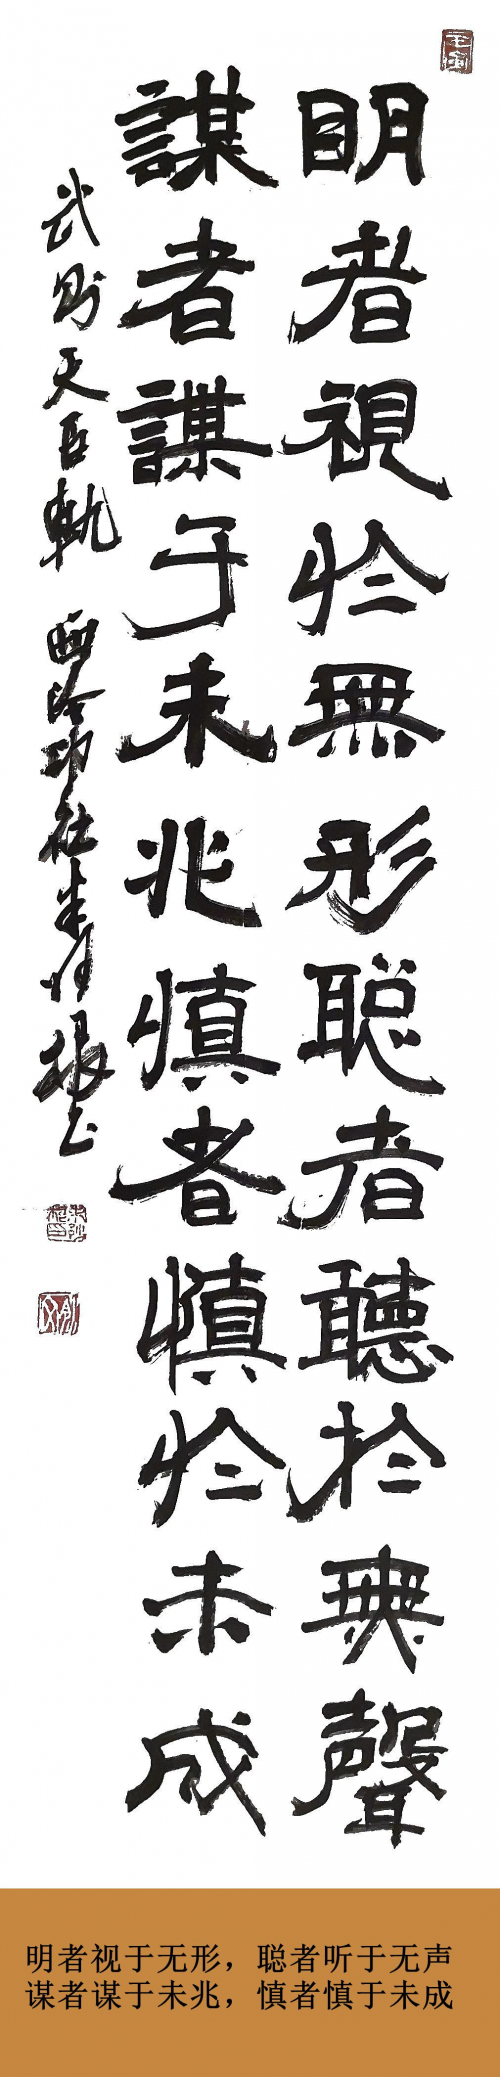 明者視於無形聪者聽於無聲
謀者謀于未兆慎者慎於未成
武则天臣軌 西泠印社朱妙根书
明者视于无形，聪者听于无声
谋者谋于未兆，慎者慎于未成